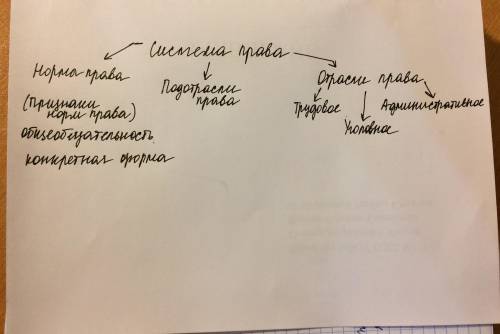 Система права
Норма права
(Признаки
норм права)
общеобязательность
конкретная форма
Подотрасли
права
Отрасли права
Трудовое
Уголовное
Административное